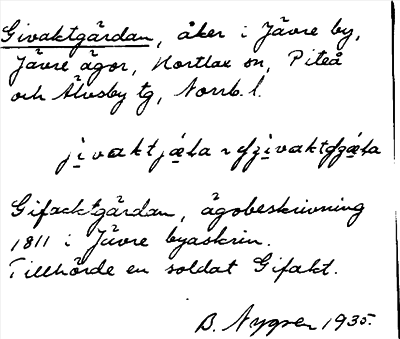 Givaktgärdan, åker i Jävre by,
Jävre ägor, Hortlax sn, Piteå
och Älvsby tg, Norrb. l.
Gifacktgärdan, ägobeskrivning
1811 i Jävre byaskrin.
Tillhörde en soldat Gifakt.
B. Nygren 1935.